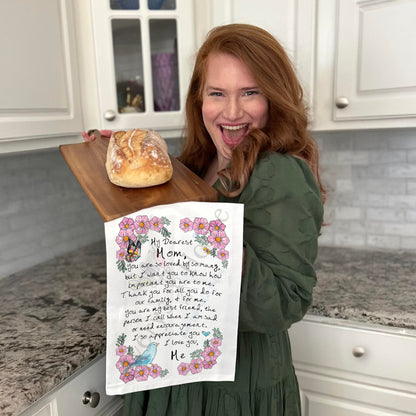 My Dearest
Mom,
you are so loved by so many,
but I want you to know how
important you are to me.
Thank you for all you do for
our family, & for me.
You are my best friend, the
person I call when I am sad
or need encouragement.
I so appreciate you
I love you,
Me